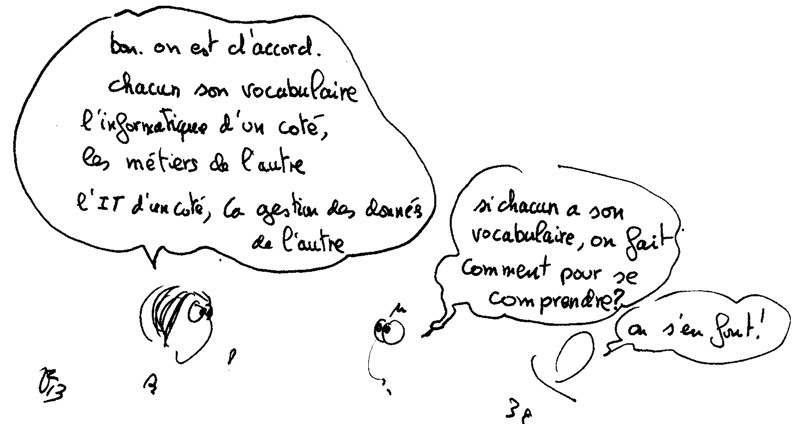 bon. on est d'accord.
chacun son vocabulaire
l'informatique d'un coté,
les métiers de l'autre
l'IT d'un coté, la gestion des donnés
de l'autre
si chacun a son
vocabulaire, on fait
comment pour se
comprendre?
on s'en fout!